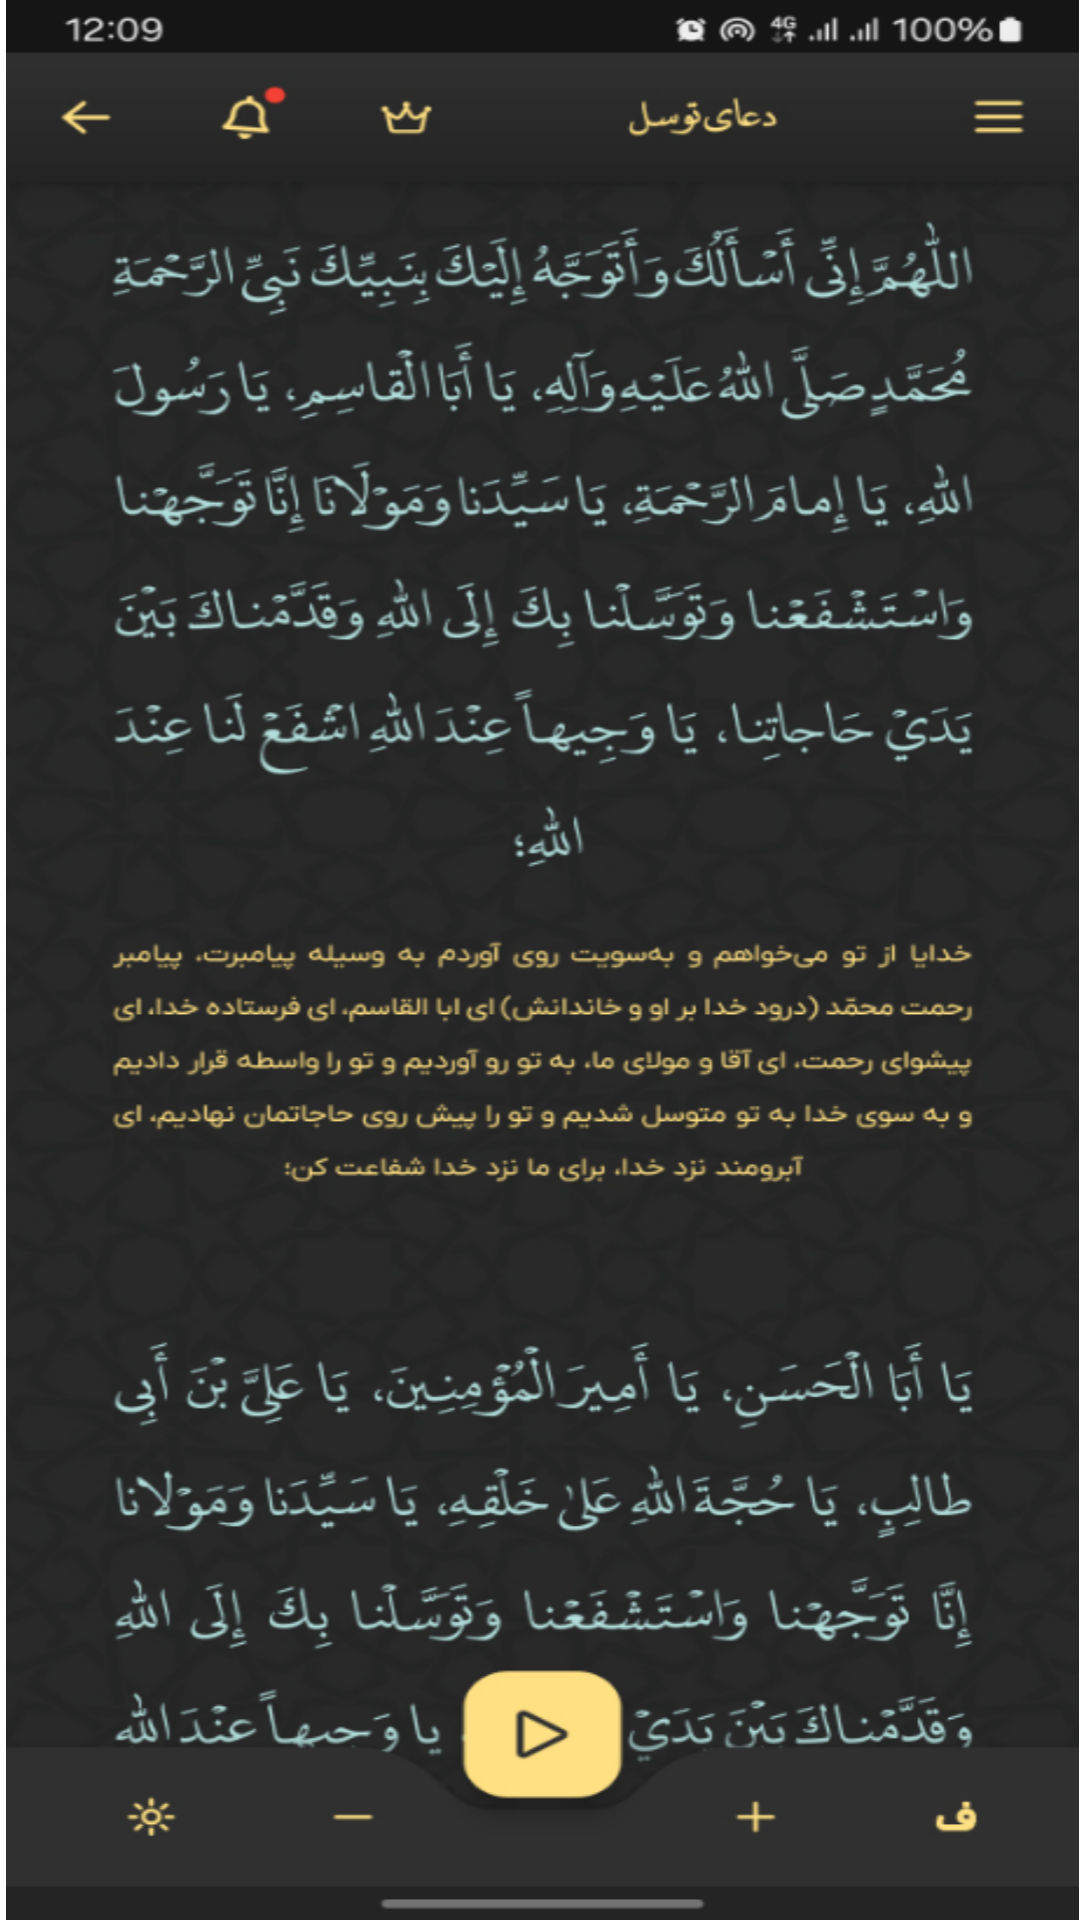 12:09 4G 100%
دعای توسل
اللّٰهُمَّ إِنِّى أَسْأَلُكَ وَأَتَوَجَّهُ إِلَيْكَ بِنَبِيِّكَ نَبِىِّ الرَّحْمَةِ
مُحَمَّدٍ صَلَّى اللّٰهُ عَلَيْهِ وَآلِهِ، يَا أَبَا الْقاسِمِ، يَا رَسُولَ
اللّٰهِ، يَا إِمامَ الرَّحْمَةِ، يَا سَيِّدَنا وَمَوْلَانَا إِنَّا تَوَجَّهْنا
وَاسْتَشْفَعْنا وَتَوَسَّلْنا بِكَ إِلَى اللّٰهِ وَقَدَّمْناكَ بَيْنَ
يَدَيْ حَاجاتِنا، يَا وَجِيهاً عِنْدَ اللّٰهِ اشْفَعْ لَنا عِنْدَ
اللّٰهِ؛
خدایا از تو می‌خواهم و به‌سویت روی آوردم به وسیله پیامبرت، پیامبر
رحمت محمّد (درود خدا بر او و خاندانش) ای ابا القاسم، ای فرستاده خدا، ای
پیشوای رحمت، ای آقا و مولای ما، به تو رو آوردیم و تو را واسطه قرار دادیم
و به سوی خدا به تو متوسل شدیم و تو را پیش روی حاجاتمان نهادیم، ای
آبرومند نزد خدا، برای ما نزد خدا شفاعت کن؛
يَا أَبَا الْحَسَنِ، يَا أَمِيرَ الْمُؤْمِنِينَ، يَا عَلِىَّ بْنَ أَبِى
طالِبٍ، يَا حُجَّةَ اللّٰهِ عَلىٰ خَلْقِهِ، يَا سَيِّدَنا وَمَوْلانا
إِنَّا تَوَجَّهْنا وَاسْتَشْفَعْنا وَتَوَسَّلْنا بِكَ إِلَى اللّٰهِ
وَقَدَّمْناكَ بَيْنَ يَدَيْ يا وَجِيهاً عِنْدَ اللّٰهِ
ف